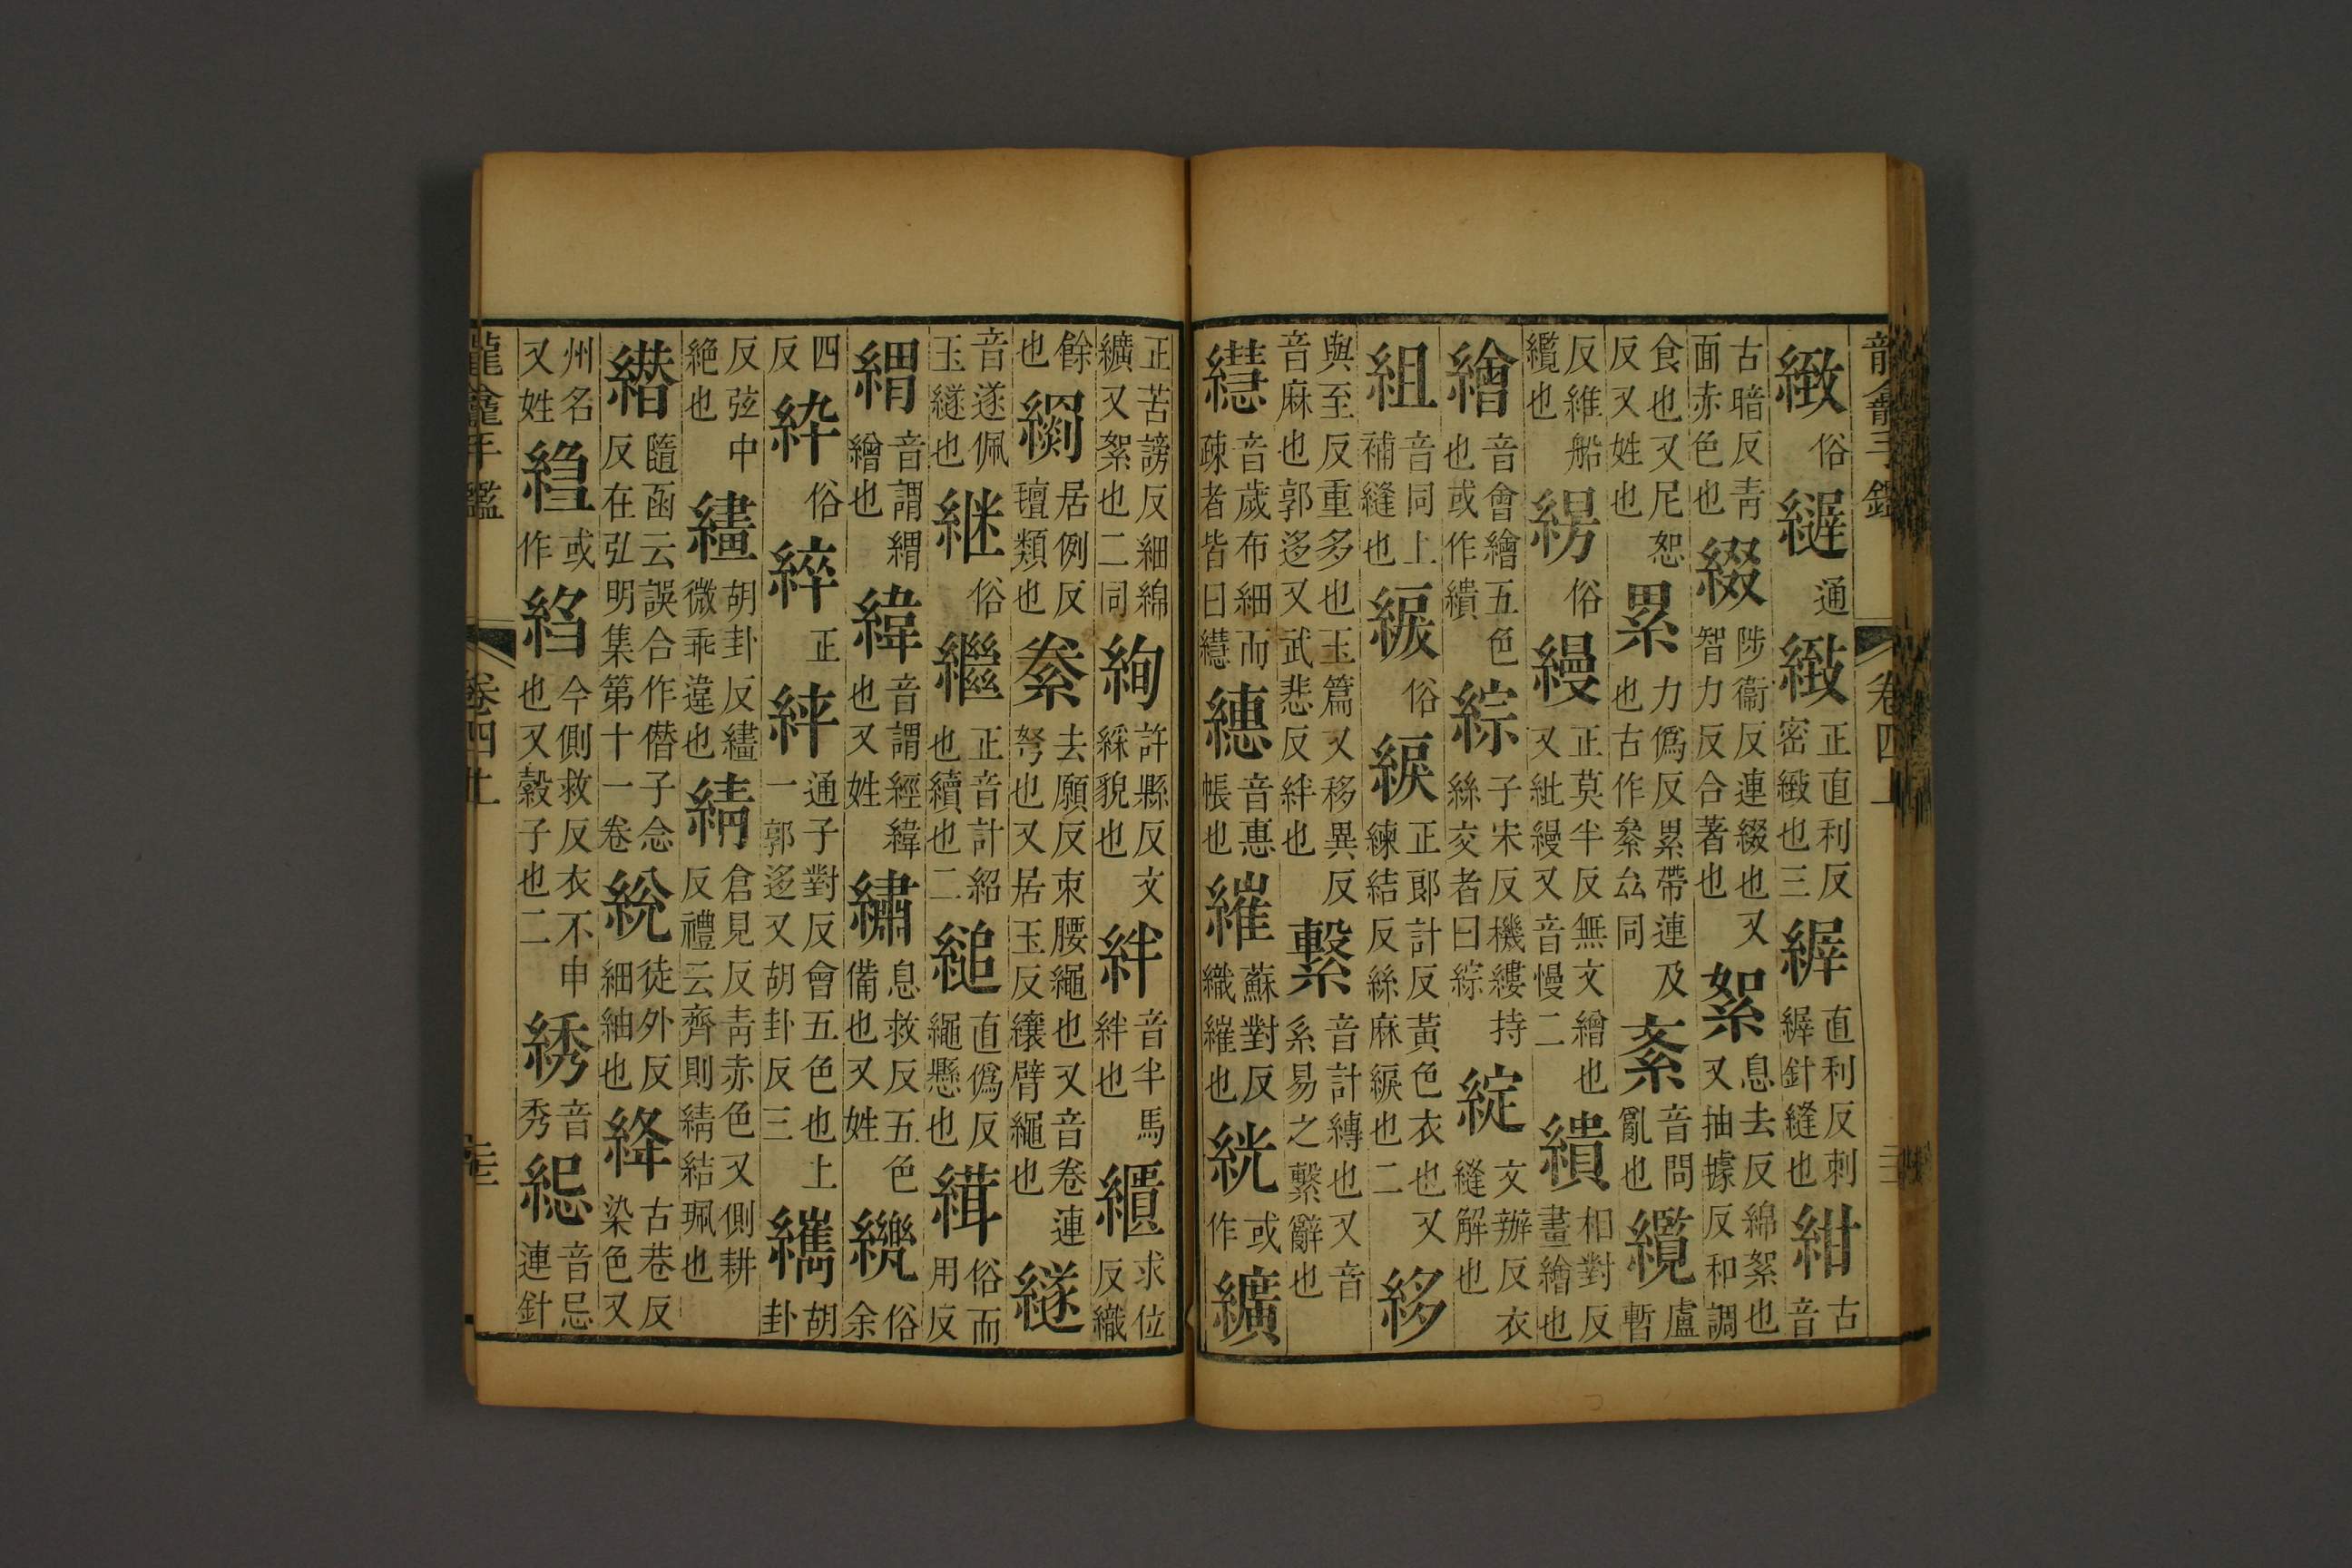 龍龕手鑑
卷四上
緻俗縰通緻正直利反密緻也三繲直利反刺繲針縫也紺古音
古暗反青面赤色也綴陟衞反連綴也又智力反合著也絮息去反綿絮也又抽據反和調
食也又尼恕反又姓也累力僞反累帶連及也古作絫厽同紊音問亂也纜盧暫
反維船纜也䋚俗縵正莫半反無文繒也又紪縵又音慢二繢相對反畫繪也
繪音會繪五色也或作繢綜子宋反機縷持絲交者曰綜綻文辦反衣縫解也
組音同上補縫也綟俗綟正郎計反黃色衣也又練結反絲麻綟也二䋾
與至反重多也玉篇又移異反音麻也郭迻又武悲反絆也繫音計縛也又音系易之繫辭也
䌏音歲布細而疎者皆曰繐繐音惠帳也繀蘇對反織繀也絖或作纊
正苦謗反細綿纊又絮也二同絢許縣反文綵貌也絆音半馬絆也繢求位反織
餘也罽居例反㻞類也絭去願反束腰繩也又音卷連弩也又居玉反纕臂繩也繸
音遂佩玉繸也継俗繼正音計紹也續也二縋直僞反繩懸也緝俗而用反
緭音謂緭繒也緯音謂經緯也又姓繡息救反五色備也又姓䌫俗余
四反紣俗綷正絆通子對反會五色也上一郭迻又胡卦反三纗胡卦
反弦中絶也繣胡卦反繣微乖違也綪倉見反青赤色又側耕反禮云齊則綪結珮也
䊵隨函云誤合作僭子念反在弘明集第十一卷綐徒外反細紬也絳古巷反染色又
州名又姓縐或作縐今側救反衣不申也又縠子也二綉音秀䋟音忌連針
龍龕手鑑
卷四上